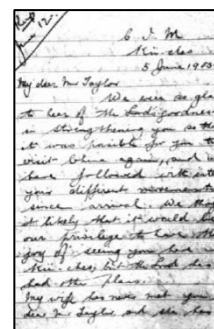 C. I. M
Kin-cheo
5 June 1903
My dear Mr Taylor
We were so glad
to hear of the Lord's goodness
in strengthening you so that
it was possible for you to
visit China again, and we
have followed with
your different movements
since arrival. We
it likely that it would be
our privilege to have the
joy of seeing you here in
Kin-cheo, but the Lord has
had other plans.
My wife has never met you
dear Mr Taylor and she has